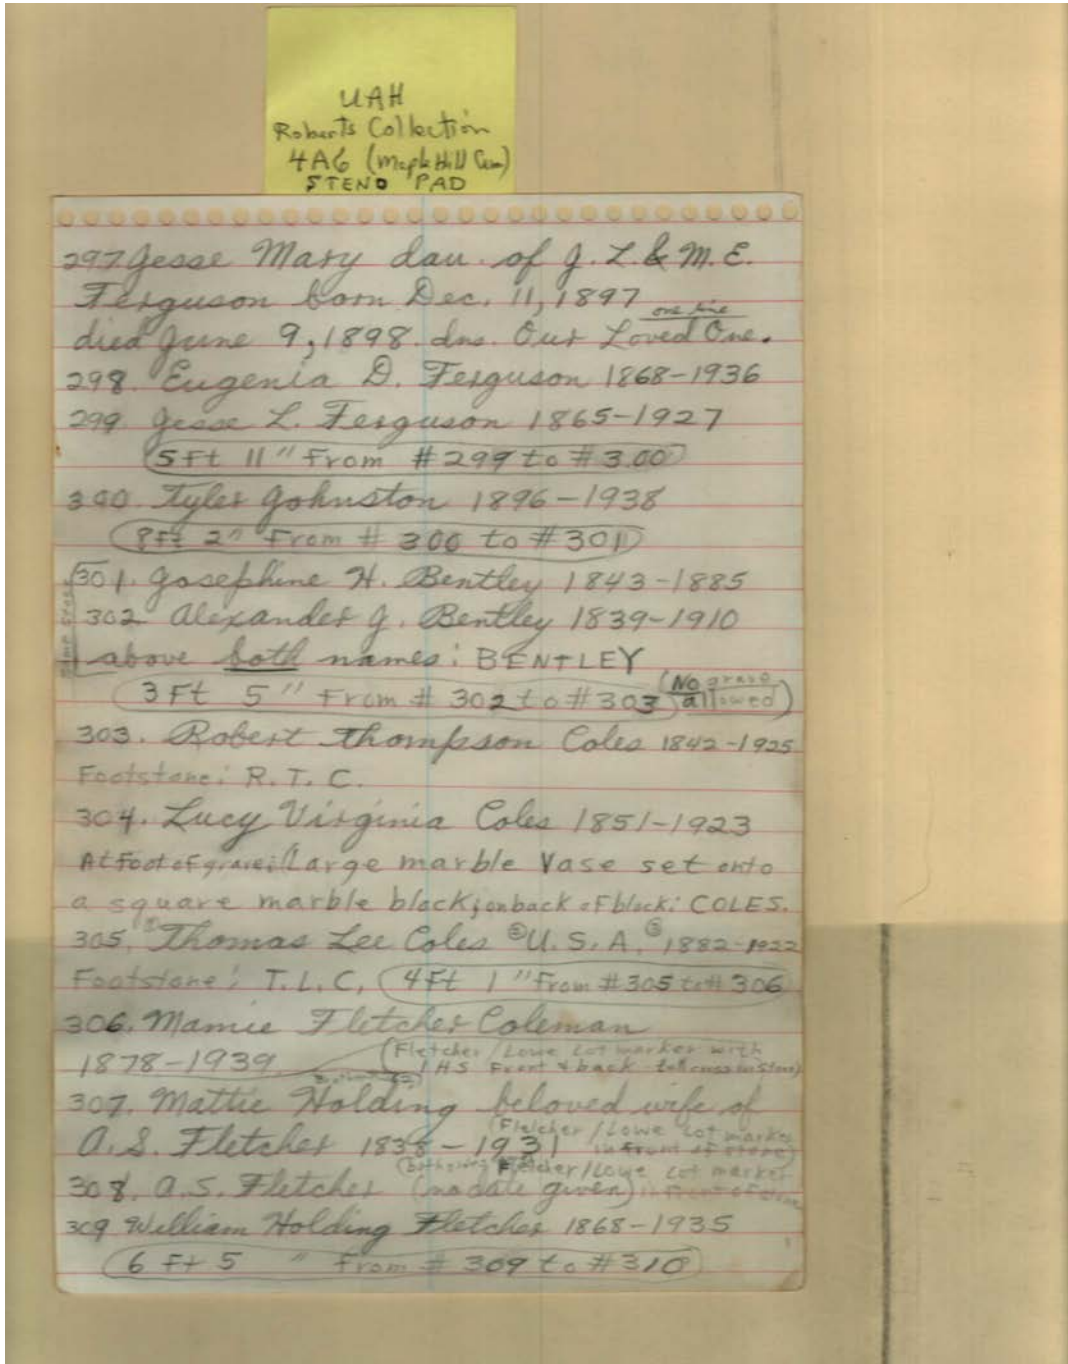 UAH
Roberts Collection
4A6 (Maple Hill Cem)
STENO PAD
297. Jesse Mary dau. of J. L. & M. E.
Ferguson born Dec. 11, 1897
one line
died June 9, 1898. dns. Our Loved One.
298. Eugenia D. Ferguson 1868-1936
299. Jesse L. Ferguson 1865-1927
5Ft 11" From #299 to #300
300. Tyler Johnston 1896-1938
8Ft 2" From # 300 to #301
301. Josephine H. Bentley 1843-1885
302 Alexander J. Bentley 1839-1910
same stone
above both names: BENTLEY
3Ft 5" From # 302 to #303 (No grave allowed)
303. Robert Thompson Coles 1842-1925
Footstone: R. T. C.
304. Lucy Virginia Coles 1851-1923
At foot of grave: Large marble Vase set onto
a square marble block; on back of block: COLES.
305. ① Thomas Lee Coles ② U. S. A. ③ 1882-1922
Footstone: T. L. C. 4Ft 1" From #305 to # 306
306. Mamie Fletcher Coleman
1878-1939 (Fletcher/Lowe Lot marker with
IHS Front & back
307. Mattie Holding beloved wife of
A. S. Fletcher 1838-1931 (Fletcher/Lowe Lot marker in front of stone)
308. A. S. Fletcher (no date given) Fletcher/Lowe Lot marker in front of stone
309 William Holding Fletcher 1868-1935
6 Ft 5 " From # 309 to #310